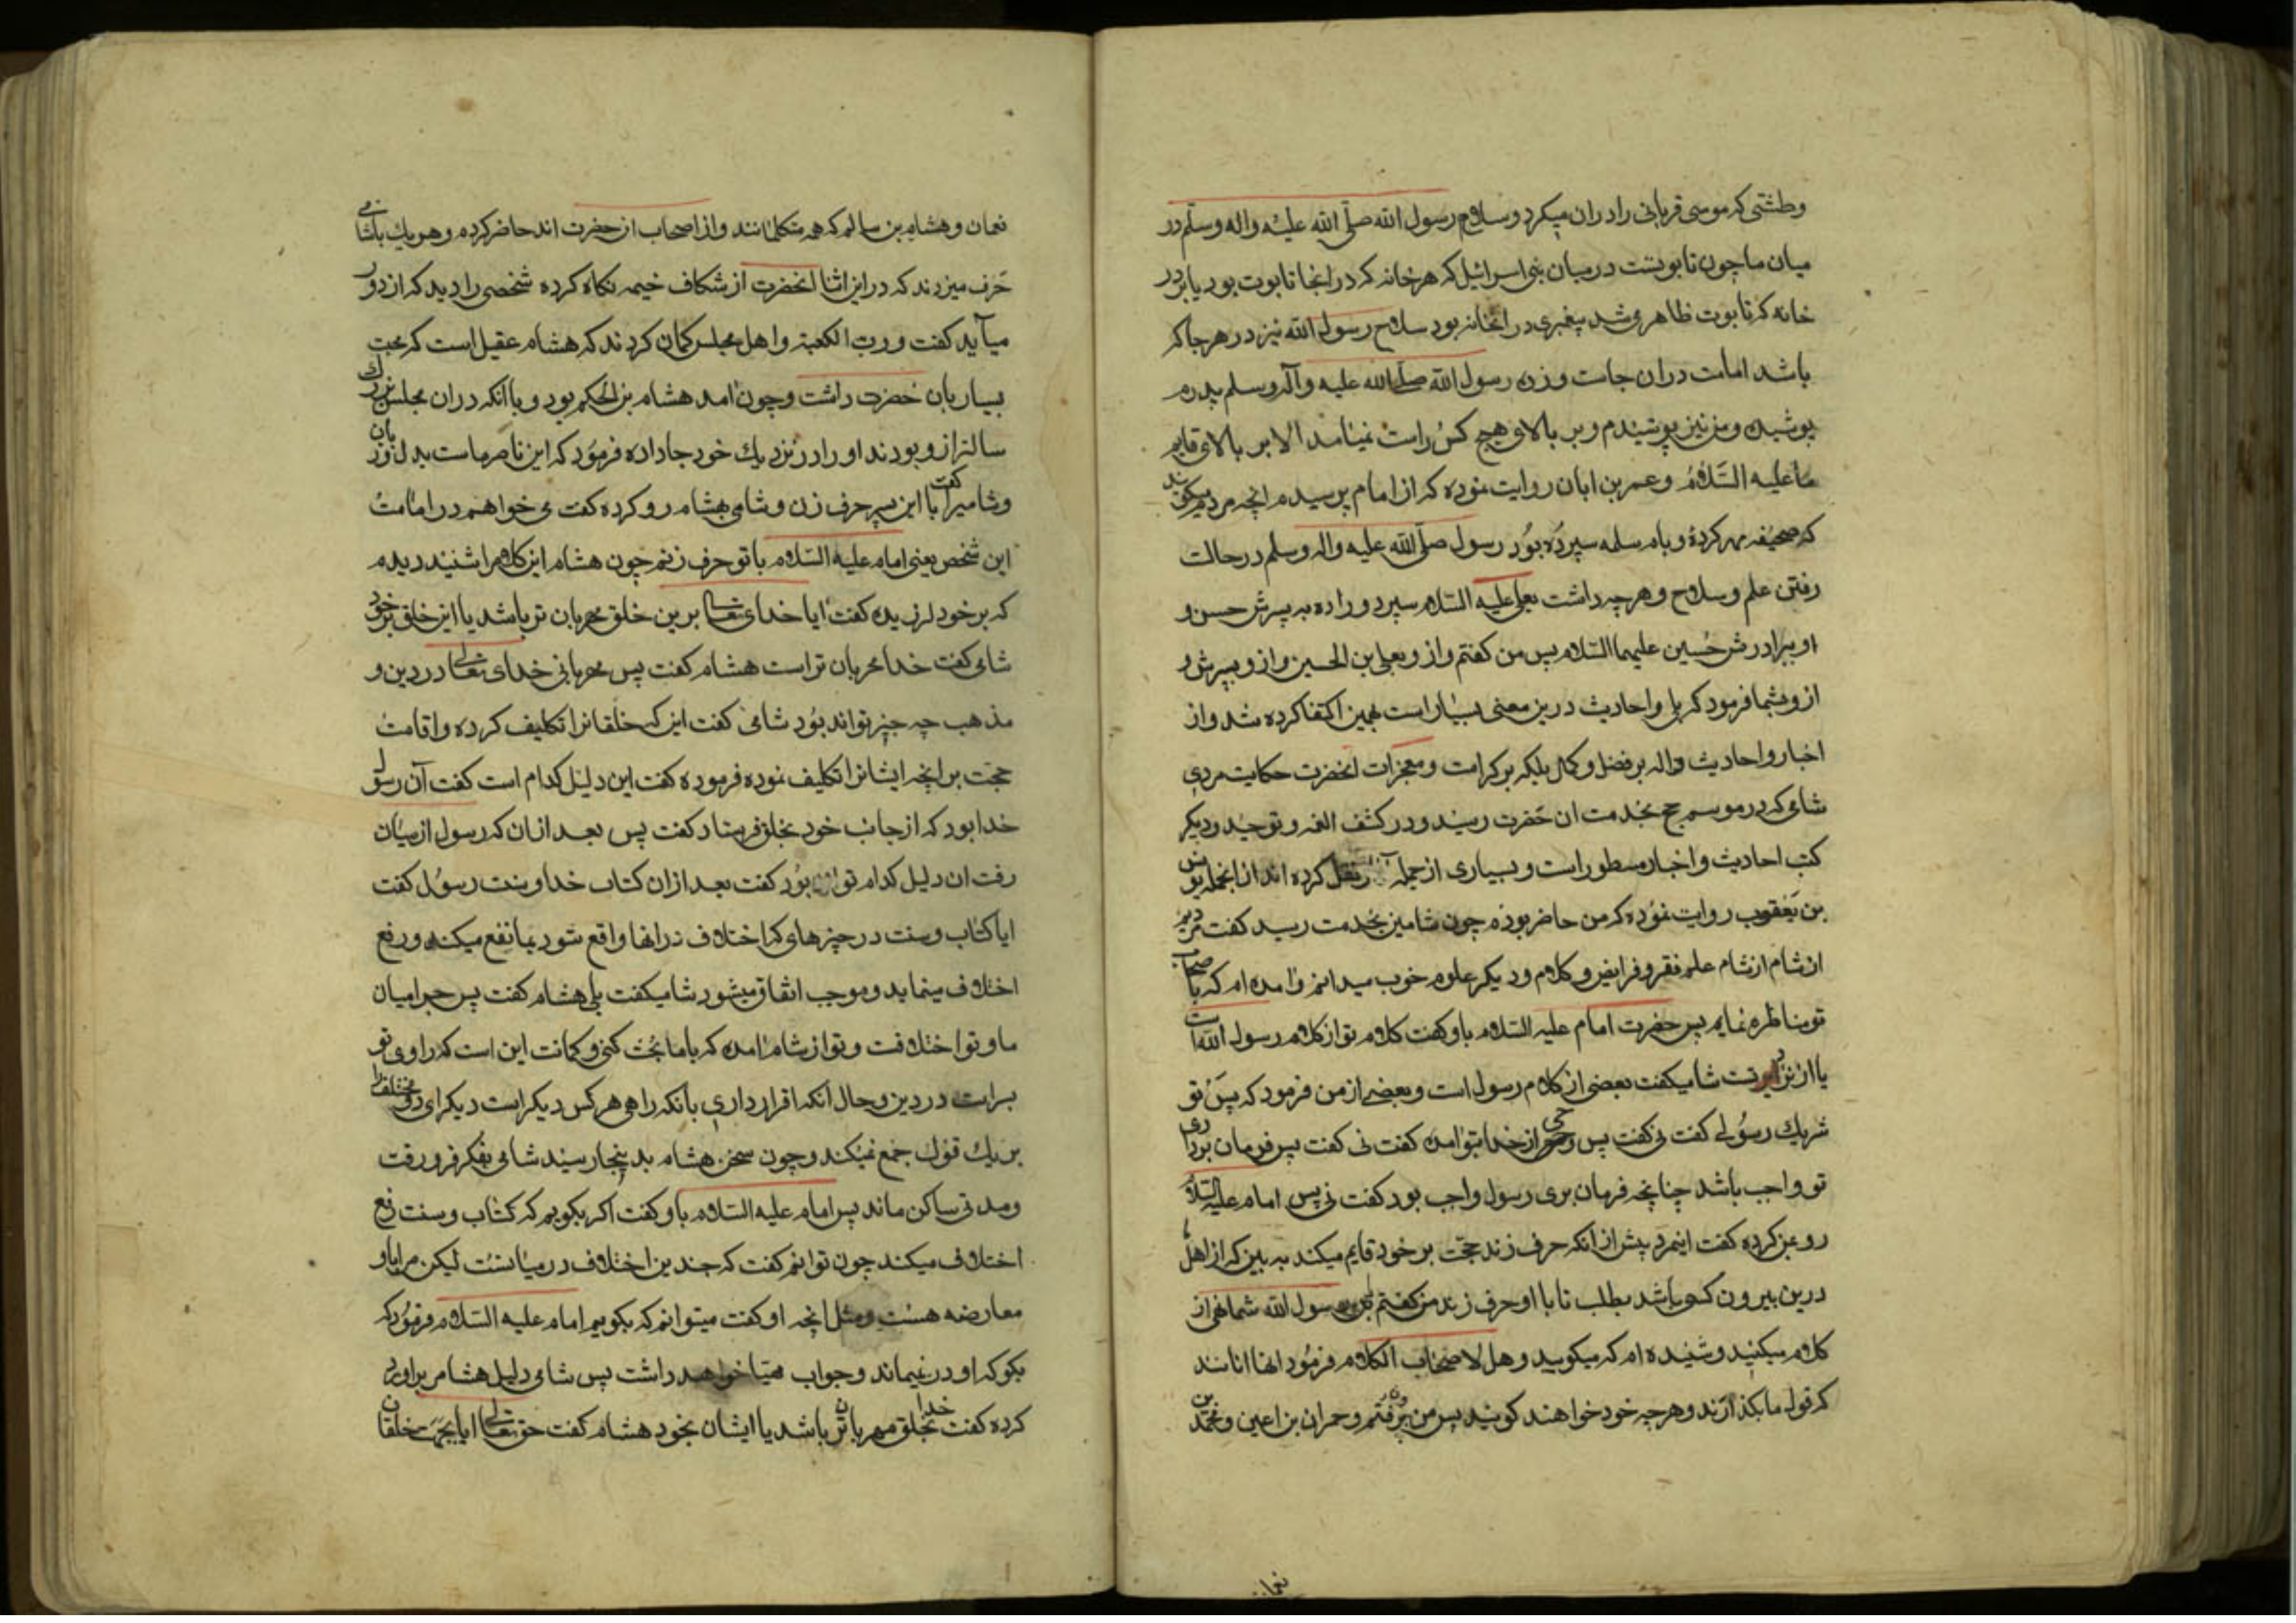 وطشتی که موسی قربانی را در ان میکرد و سلاح رسول الله صلی الله علیه واله وسلم در
میان ما چون تابوتست در میان بنی اسرائیل که هر خانه که در انجا تابوت بود یا بر در
خانه که تابوت ظاهر می شد پیغبری در انخانه بود سلاح رسول الله نیز در هر جا که
باشد امامت در ان جاست و زره رسول الله صلی الله علیه وآله وسلم پدرم
پوشیده و من نیز پوشیدم و بر بالای هیچ کس راست نمیامد الا بر بالای قایم
ما علیه السّلام و عمر بن ابان روایت نموده که از امام پرسیدم انچه مردم میکویند
که صحیفه مهر کرده و بام سلمه سپرده بود رسول صلی الله علیه واله وسلم در حالت
رفتن علم و سلاح و هر چه داشت بعلی علیه السلام سپرد و راده به پسرش حسن و
او ببرادرش حسین علیهما السلام پس من کفتم و از و بعلی بن الحسین و از و بپسرش و
از و بشما فرمود که بلی و احادیث درین معنی بسیار است بهمین اکتفا کرده شد و از
اخبار و احادیث داله بر فضل و کمال بلکه بر کرامت و معجزات انحضرت حکایت مردی
شامی که در موسم حج بخدمت ان حضرت رسید و در کشف الغمه و توحید و دیکر
کتب احادیث و اخبار مسطور است و بسیاری از جمله نقل کرده اند از انجمله یونس
بن یعقوب روایت نموده که من حاضر بودم چون شامین بخدمت رسید کفت مردیم
از شام ازشام علم فقه و فرایض و کلام و دیکر علوم خوب میدانم و امده ام که با صحاب
تو مناظره نمایم پس حضرت امام علیه السلام باو کفت کلام تو از کلام رسول الله است
یا از نزد تست شامیکفت بعضی از کلام رسول است و بعضی از من فرمود که پس تو
شریك رسولی کفت نی کفت پس وحی از خدا بتو امده کفت نی کفت پس فرمان برداری
تو واجب باشد چنانچه فرمان بری رسول واجب بود کفت نی پس امام علیه السلام
رو بمن کرده کفت اینمرد پیش از انکه حرف زند حجت بر خود قایم میکند به بین که از اهل
درین بیرون کسی باشد بطلب تا با او حرف زند من کفتم یا بن رسول الله شما نهی از
کلام میکنید و شنیده ام که میکویید و هل لاصحاب الکلام فرمود انها انانند
که قول ما بکذارند و هر چه خود خواهند کویند پس من بیرون رفتم و حمران بن اعین و محمد بن
نعما
نعمان و هشام بن سالم که همه متکلمانند و از اصحاب ان حضرت اند حاضر کرده و هر یك باشامی
حرف میزدند که در این اثنا انحضرت از شکاف خیمه نکاه کرده شخصی را دید که از دور
میآید کفت و رب الکعبة و اهل مجلس کمان کردند که هشام عقیل است که محبت
بسیار بان حضرت داشت و چون امد هشام بن الحکم بود و با انکه در ان مجلس بزرك
سالتر از و بودند او را در نزدیك خود جا داده فرمود که این ناصر ماست بدل و زبان
و شامیرا کفت با این پسر حرف زن و شامی بهشام رو کرده کفت می خواهم در امامت
این شخص یعنی امام علیه السلام با تو حرف زنم چون هشام این کلام را شنید دیدم
که بر خود لرزیده کفت ایا خدای تعالی برین خلق مهربان تر باشد یا این خلق بر خود
شامی کفت خدا مهربان تر است هشام کفت پس مهربانی خدای تعالی در دین و
مذهب چه چیز تواند بود شامی کفت این که خلقانرا تکلیف کرده و اقامت
حجت بر انچه ایشانرا تکلیف نموده فرموده کفت این دلیل کدام است کفت آن رسول
خدا بود که از جانب خود بخلق فرستاد کفت پس بعد از ان که رسول از میان
رفت ان دلیل کدام تواند بود کفت بعد از ان کتاب خدا و سنت رسول کفت
ایا کتاب و سنت در چیزهای که اختلاف در انها واقع شود بما نفع میکند و رفع
اختلاف مینماید و موجب اتفاق میشود شامیکفت بلی هشام کفت پس چرا میان
ما و تو اختلافت و تو از شام امده که با ما بحث کنی و کمانت این است که راوی تو
برات در دین و حال انکه اقرار داری بانکه راهی هر کس دیکر است دیکر ای دو مختلفرا
بر یك قول جمع نمیکند و چون سخن هشام بدینجا رسید شامی بفکر فرو رفت
و مدتی ساکن ماند پس امام علیه السلام باو کفت اکر بکویم که کتاب و سنت رفع
اختلاف میکند چون توانم کفت که چندین اختلاف در میانست لیکن مرا باو
معارضه هست و مثل انچه او کفت میتوانم که بکویم امام علیه السلام فرمود که
بکو که او در نمیماند و جواب مهیا خواهد داشت پس شامی دلیل هشام بر او رد
کرده کفت خدا بخلق مهربان تر باشد یا ایشان بخود هشام کفت حق تعالی ایا بجهت خلقان